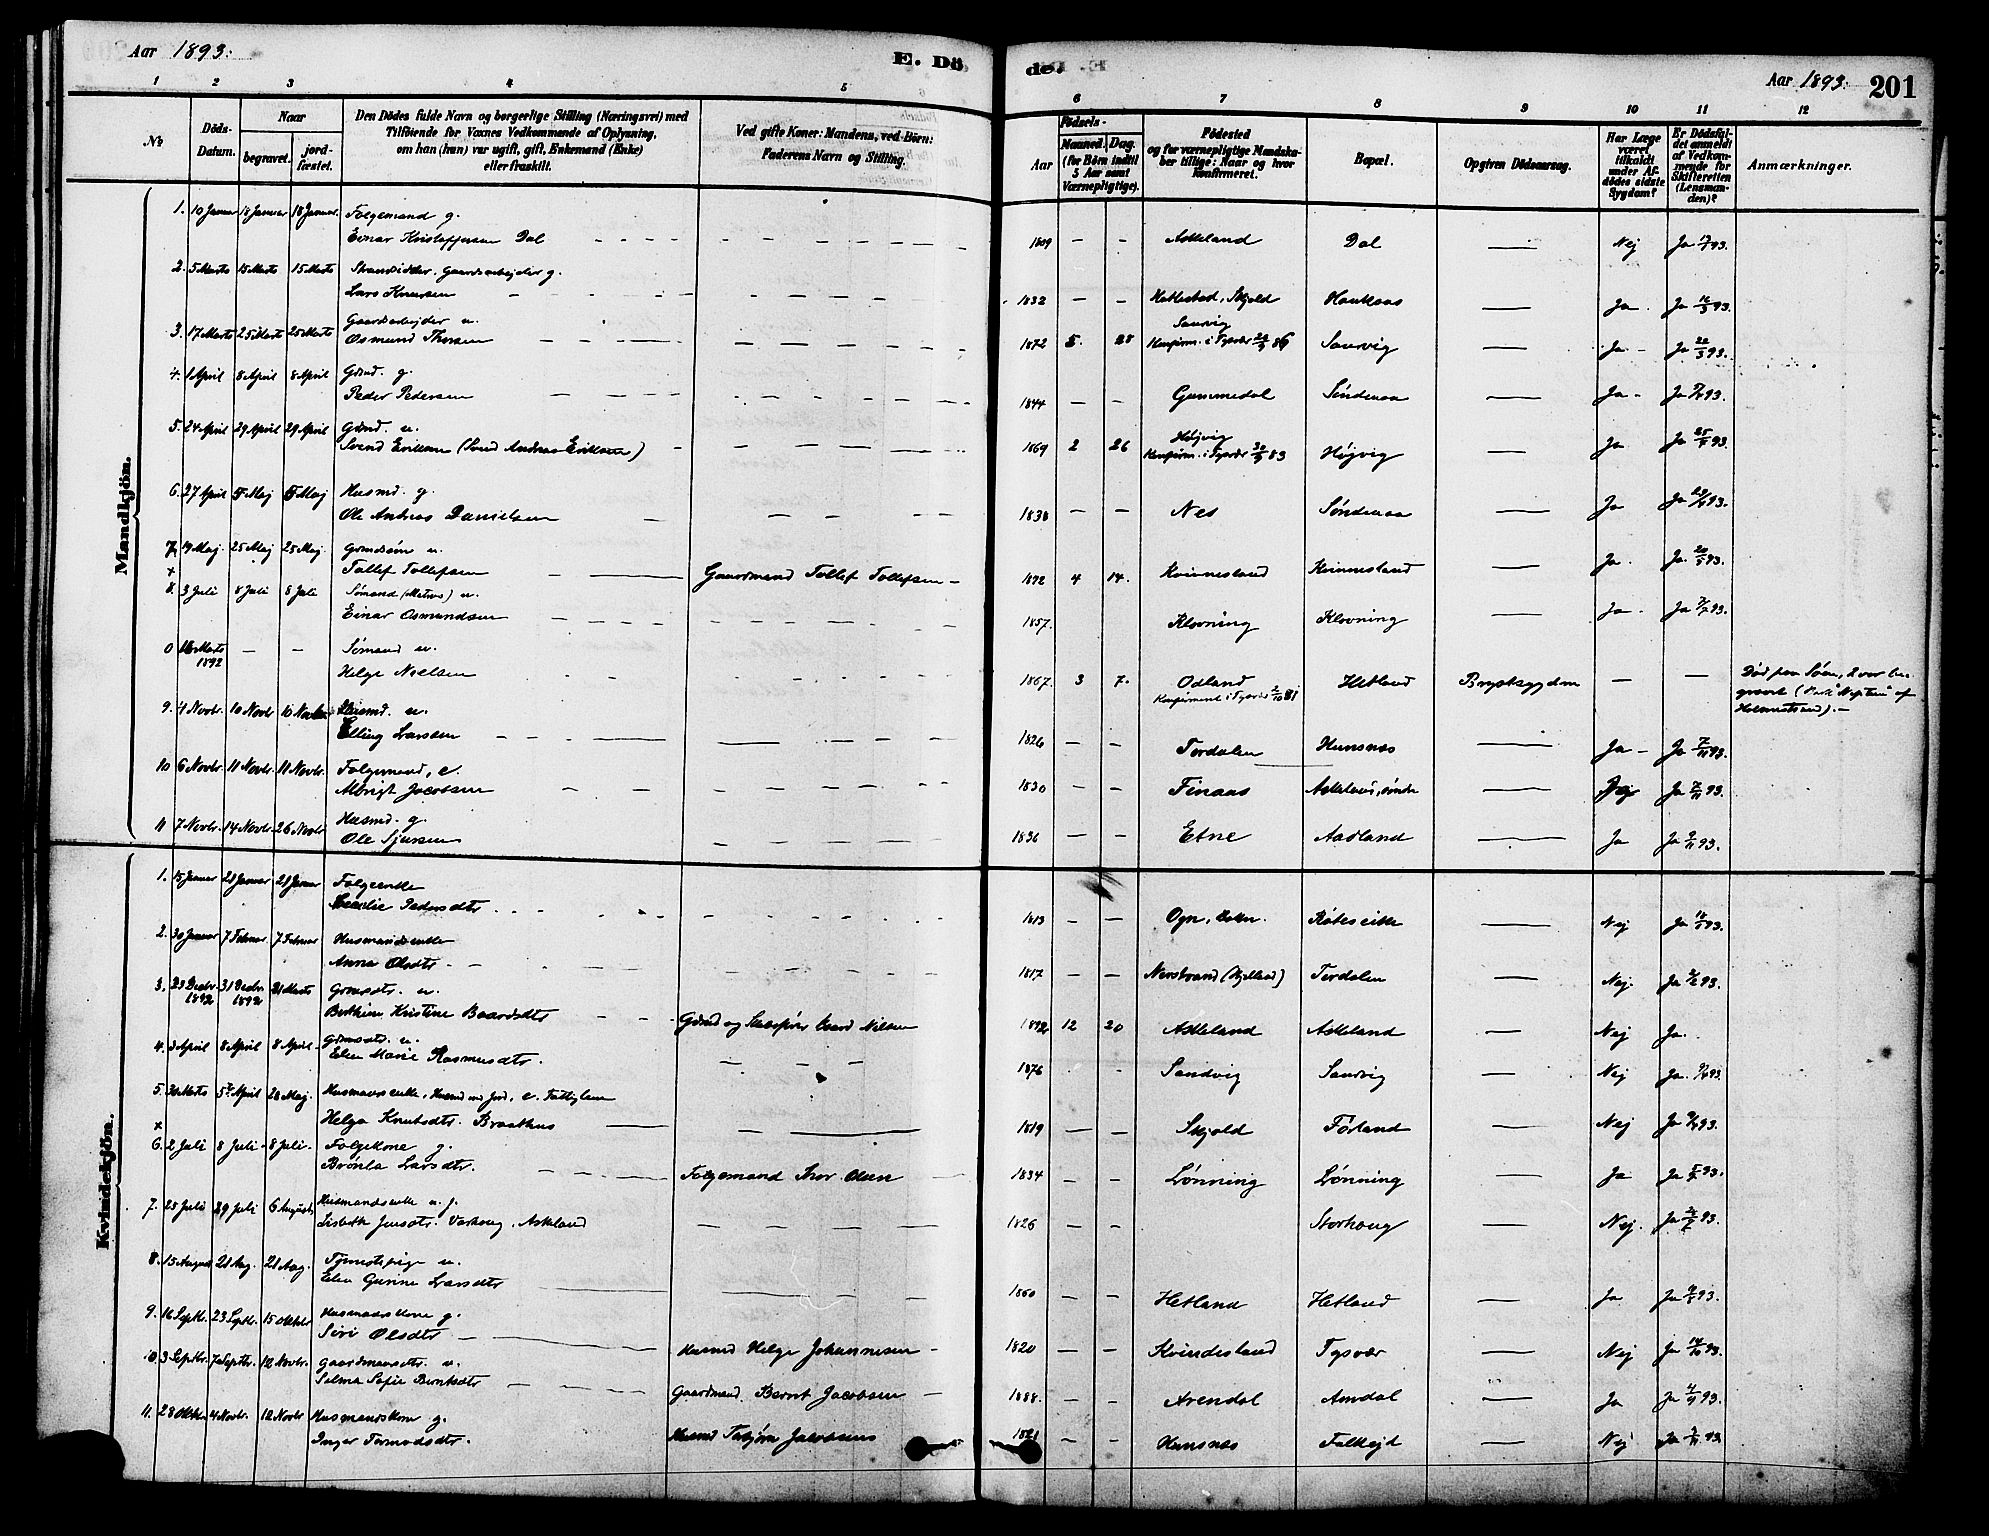 Aar 1893.
E. Dö
de.
Aar 1893.
201
1 2 3 4 5
6 7 8 9 10 11 12
No.
Döds-Datum.
Naar
begravet.
jordfæstet.
Den Dödes fulde Navn og borgerlige Stilling (Næringsvei) med
Tilföiende for Voxnes Vedkommende af Oplysning,
om han (hun) var ugift, gift, Enkemand (Enke)
eller fraskilt.
Ved gifte Koner: Mandens, ved Börn:
Faderens Navn og Stilling.
Födsels-
Aar
Maaned. Dag.
(for Börn indtil
5 Aar samt
Værnepligtige).
Födested
og for værnepligtige Mandska-
ber tillige: Naar og hvor
Konfirmeret.
Bopæl.
Opgiven Dödsaarsag.
Har Læge
været
tilkaldt
under Af-
dödes sidste
Sygdom?
Er Dödsfal-
det anmeldt
af Vedkom-
mende for
Skifteretten
(Lensman-
den)?
Anmærkninger.
Mandkjön.
1. 10 Januar 18 Januar 18 Januar Folgemand g.
Einar Kristoffersen Dal 1809 — — Askeland Dal — Nej Ja 93.
2. 5 Marts 15 Marts 15 Marts Strandsidder. Gaardsarbejder g.
Lars Knutsen 1832 — — Skjold Haukaas — Ja Ja 16/3 93.
3. 17 Marts 25 Marts 25 Marts Gaardsarbejder u.
Osmund Thorsen 1872 5. 28 Sandvig
Konfirm. i Tysvær 86 Sandvig — Ja Ja 22/3 93.
4. 1 April 8 April 8 April Grmd. g.
Peder Pedersen 1844 — — Gummedal Söndenaa — Ja Ja 93.
5. 24 April 29 April 29 April Grmd. u.
Svend Eriksen (Svend Andreas Eriksen) 1869 2 26 Højvig
Konfirm. i Tysvær 83 Højvig — Ja Ja 25/4 93.
6. 27 April 5 Maj 5 Maj Husmd. g.
Ole Andreas Danielsen 1838 — — Nes Söndenaa — Ja Ja 93.
7. 19 Maj 25 Maj 25 Maj Grmdsøn u.
Tollef Tollefsen Gaardmand Tollef Tollefsen 1892 4 14. Kvinnesland Kvinnesland — Ja. Ja. 20/5 93.
8. 3 Juli 8 Juli 8 Juli Sömand (Matros) u.
Einar Osmundsen 1857. Klovning Klovning — Ja. Ja 93.
0 Marts 1892 — — Sömand u.
Helge Nielsen 1867. 3 7. Odland
Konfirmeret i Tysvær 2/10 81 Hetland Brystsygdom — — Død paa Søen, be-
gravet ("Neptun" af
Holmestrand).
9. 4 Novbr. 10 Novbr. 10 Novbr. Husmd. u.
Elling Larssen 1826 — — Tordalen Hunsnæs — Ja Ja 7/11 93.
10 6 Novbr. 11 Novbr. 11 Novbr. Folgemand, e.
Albrigt Jacobsen 1830 — — Finaas — Ja 7/11 93.
11 7 Novbr. 14 Novbr. 26 Novbr. Husmd. g.
Ole Sjursen 1836 — — Etne Aadland — Ja Ja 9/11 93.
Kvindekjön.
1. 15 Januar 21 Januar 21 Januar Folgeenke
Pedersdtr. 1813 — — — Nej Ja 93.
2. 30 Januar 7 Februar 7 Februar Husmandsenke
Anna Olsdtr. 1817 — — Nerstrand (Hjelland) Tordalen — Nej. Ja 93.
3. 23 Decbr. 1892 31 Decbr. 1892 21 Marts Grmdsdtr. u.
Berthine Kristine Baardsdtr. Grmd og Baard Nilsen 1892 12 20 Askeland Askeland — Nej Ja.
4. 3 April 8 April 8 April Grmdsdtr. u.
Elen Marie Rasmusdtr. 1876 Sandvig Sandvig — Nej Ja. 93.
5. April 28 Maj. Husmandsenke, Husmd. med Jord, e. Fattiglem
Helga Knutsdtr. Braathus 1819 — — Skjold Førland — Nej Ja 93.
6. 2 Juli 8 Juli 8 Juli Folgekone g.
Brønla Larsdtr. Folgemand Thor Olsen 1834 — — Lønning Lønning — Ja Ja 93.
7. 25 Juli 29 Juli 6 August Husmandsenke
Lisbeth Jensdtr. Askland 1826 — — Storhaug — Nej. Ja 93.
8. 15 August 21 Aug. 21 Aug. Tjenestepige u.
Elen Gurine Larsdtr. 1860 — — Hetland Hetland — Ja Ja 93.
9. 16 Septbr. 23 Septbr. 15 Oktbr. Husmandskone g.
Siri Olsdtr. Husmd Helge Johannesen 1820 — — Kvindesland Tysvær — Nej Ja 14/10 93.
10. 3 Septbr. 7 Septbr. 12 Novbr. Gaardmandsdtr. u.
Selma Sofie Berntsdtr. Gaardmand Bernt Jacobsen 1888. — — Arendal Amdal — Ja Ja 93.
11. 28 Oktbr. 4 Novbr. 12 Novbr. Husmandskone g.
Inger Tormodsdtr. Husmd Torbjørn Jacobsens 1821 — — Hunsnæs Falkejd — Nej Ja 93.